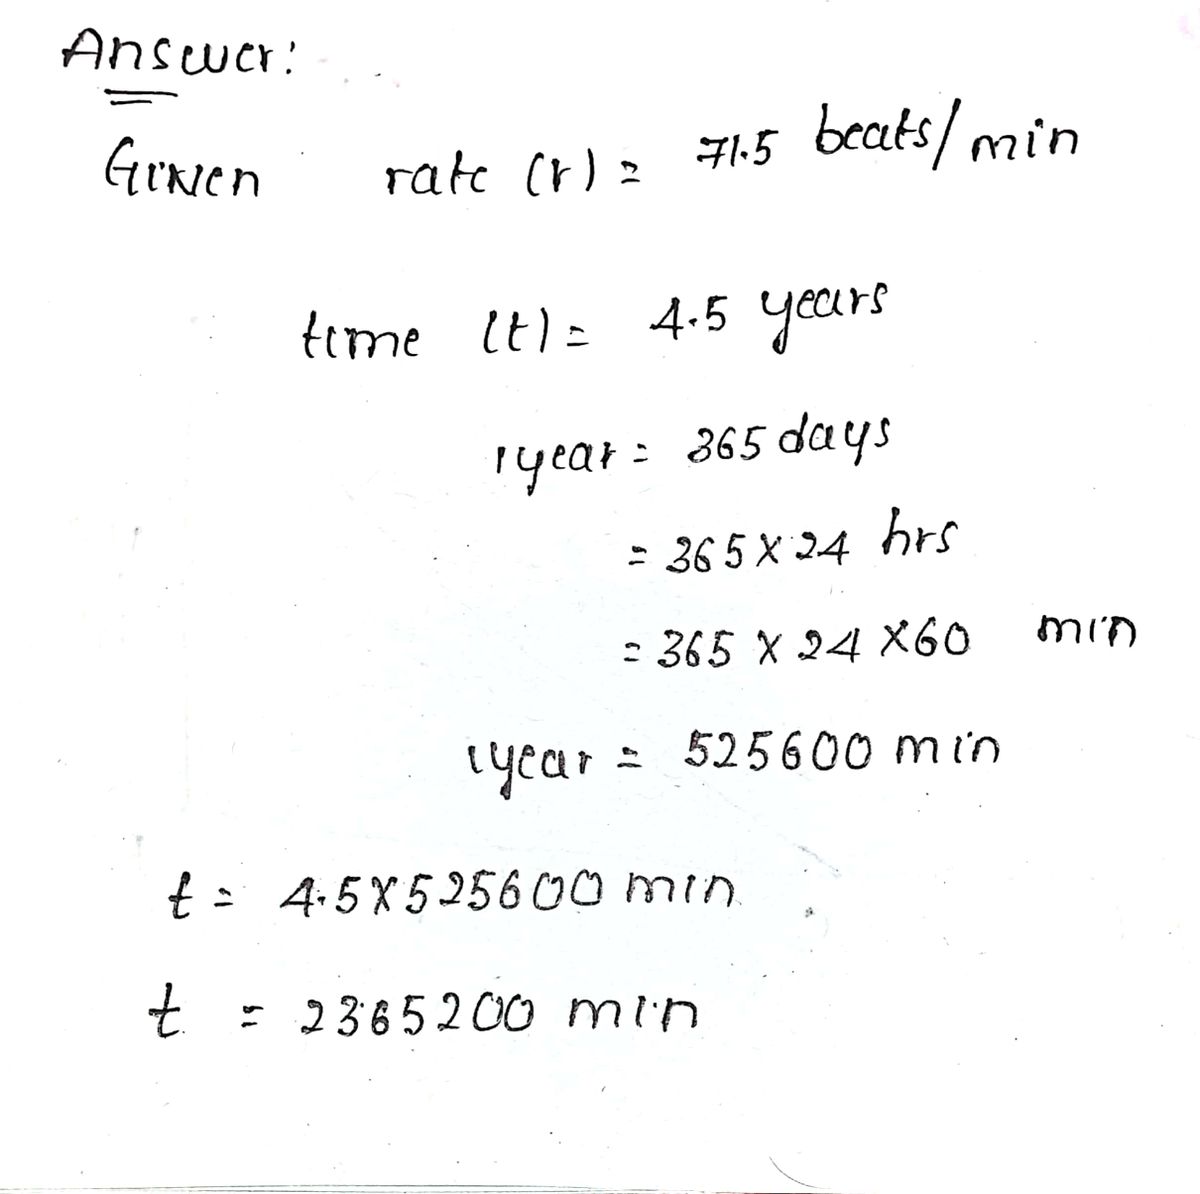 Answer:
Given rate (r) = 71.5 beats/min
time (t) = 4.5 years
1year = 365 days
= 365 X 24 hrs
= 365 X 24 X60 min
1year = 525600 min
t = 4.5X525600 min
t = 2365200 min